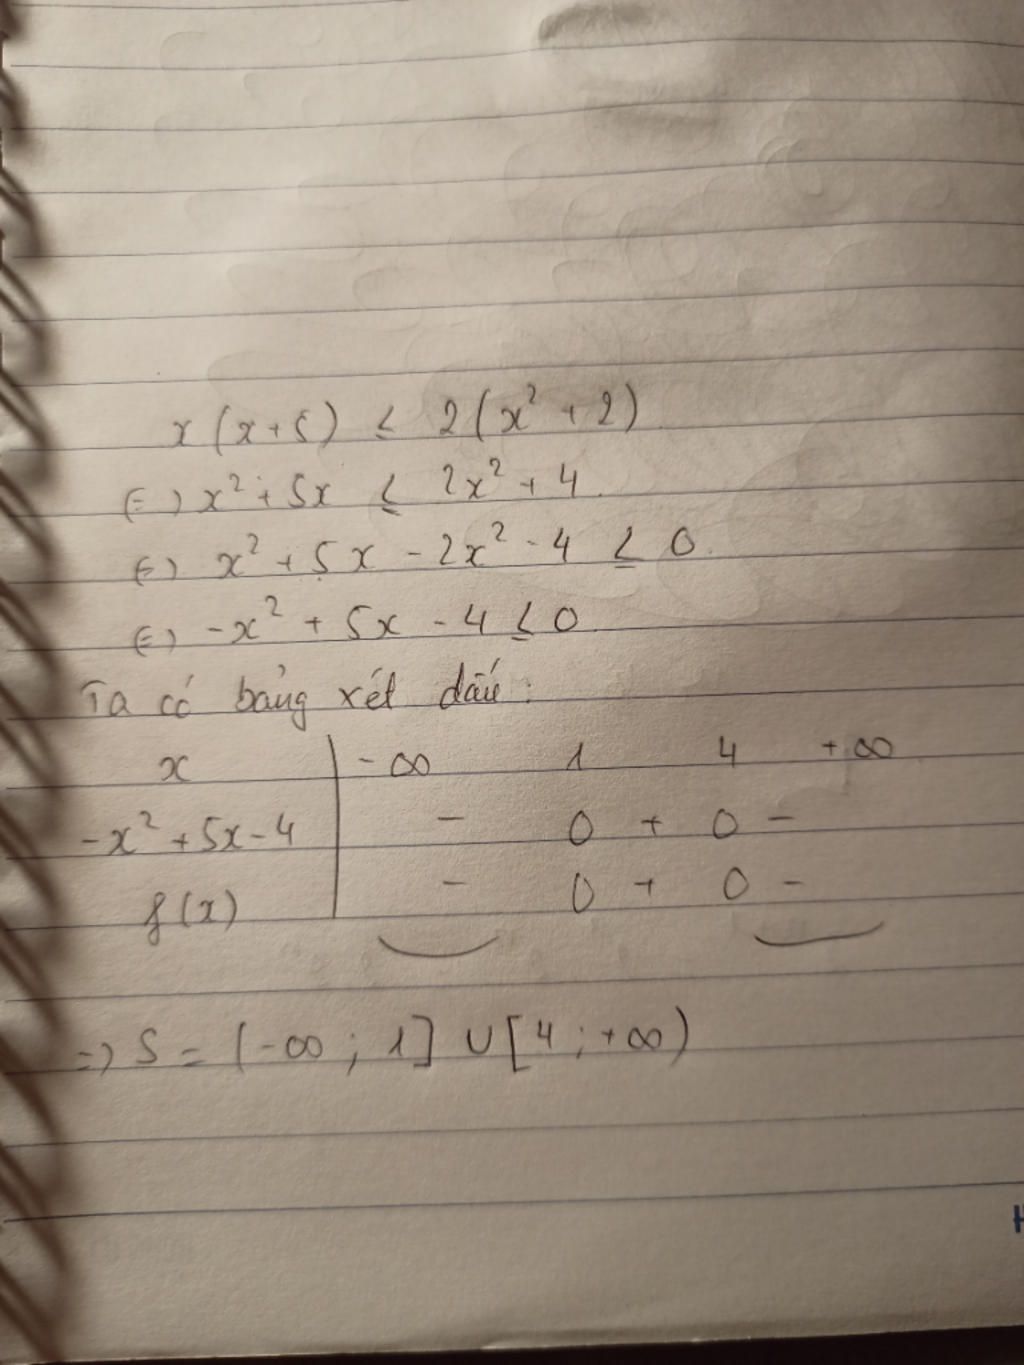 x(x+5) ≤ 2(x²+2)
(=) x²+5x ≤ 2x²+4
(=) x²+5x-2x²-4 ≤ 0
(=) -x²+5x-4 ≤ 0
Ta có bảng xét dấu:
x | -∞ 1 4 +∞
-x²+5x-4 | - 0 + 0 -
f(x) | - 0 + 0 -
=) S = (-∞; 1] ∪ [4; +∞)
H